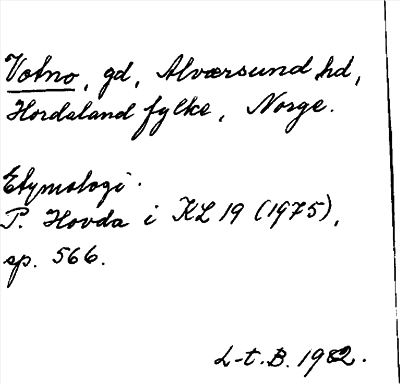 Votno, gd, Alværsund hd,
Hordaland fylke, Norge.
Etymologi.
P. Hovda i KL 19 (1975),
sp. 566.
L-t.B. 1982.